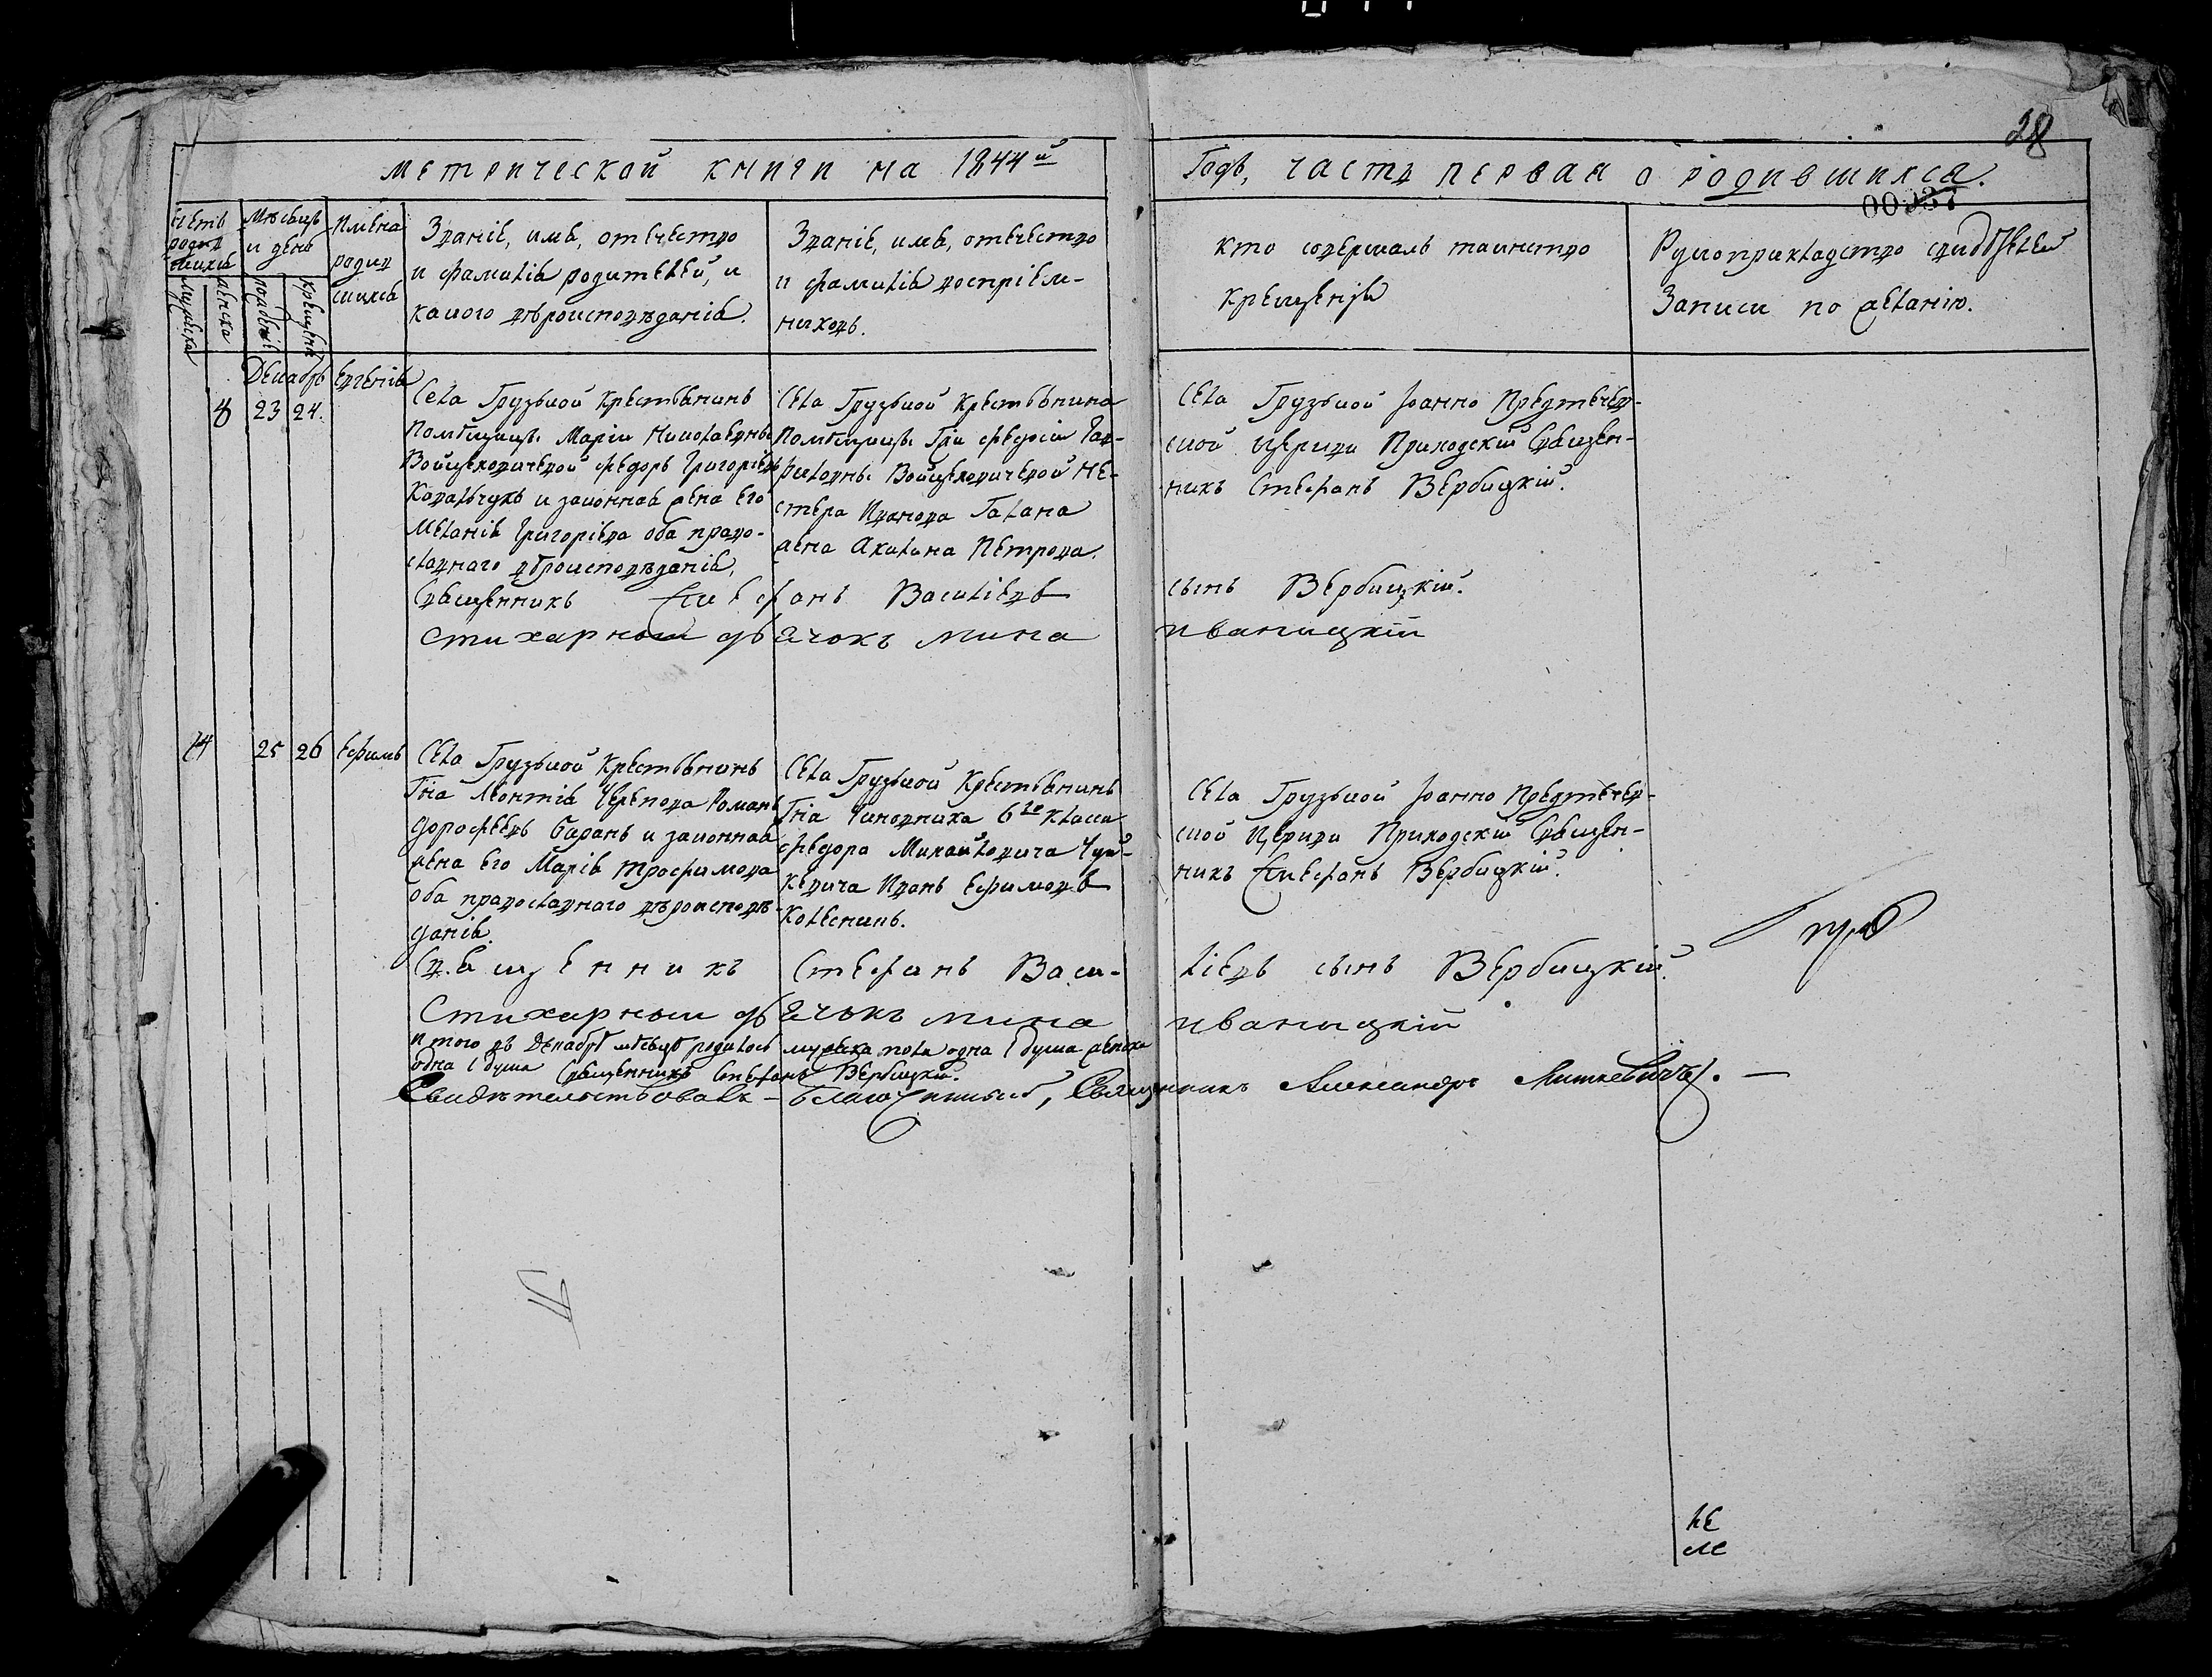 28
Метрической книги на 1844й
Годъ, часть первая о родившихся.
00037
Счетъ родившихся
Мѣсяцъ и день
Имена родившихся
Званіе, имя, отечество
и фамилія родителей, и
какого вѣроисповѣданія.
Званіе, имя, отечество
и фамилія воспріем-
никовъ.
кто совершалъ таинство
крещенія
Рукоприкладство свидѣтелей
Записи по желанію.
мужеска
женска
рожденія
крещенія
Декабрь
8 23 24.
Евгенія
Села Грузької крестьянинъ
Помѣщицы Маріи Николаевны
Войцеховичевой Федоръ Григоріевъ
Ковальчукъ и законная жена его
Меланія Григоріева оба право-
славнаго вѣроисповѣданія,
Села Грузької крестьянина
Помѣщицы Гжи Федосіи Гав-
риловны Войцеховичевой Не-
стера Иванова Галана
жена Акилина Петрова.
Села Грузької Іоанно Предтечев-
ской церкви Приходскій Священ-
никъ Стефанъ Вербицкій.
Священникъ Стефанъ Василіевъ сынъ Вербицкій.
Стихарный дьячокъ мина иваницкій
14 25 26 Ефимъ
Села Грузької крестьянинъ
Гна Леонтія Черепова Романъ
Дорофеевъ Баранъ и законная
жена его Марія Трофимова
оба православнаго вѣроисповѣ-
данія.
Села Грузької Крестьянинъ
Гна Чиновника 6го класса
Федора Михайловича Чуй-
кевича Иванъ Ефимовъ
Колесникъ.
Села Грузької Іоанно Предтечев-
ской Церкви Приходскій Священ-
никъ Стефанъ Вербицкій.
Священникъ Стефанъ Васи-ліевъ сынъ Вербицкій.
Стихарный дьячокъ мина иваницкій
Итого въ Декабрѣ мѣсяцѣ родилось мужеска пола одна 1 душа женска
одна 1 душа Священникъ Стефанъ Вербицкій.
Свидѣтельствовалъ – благочинный, Священникъ Александръ Миткевичъ. —